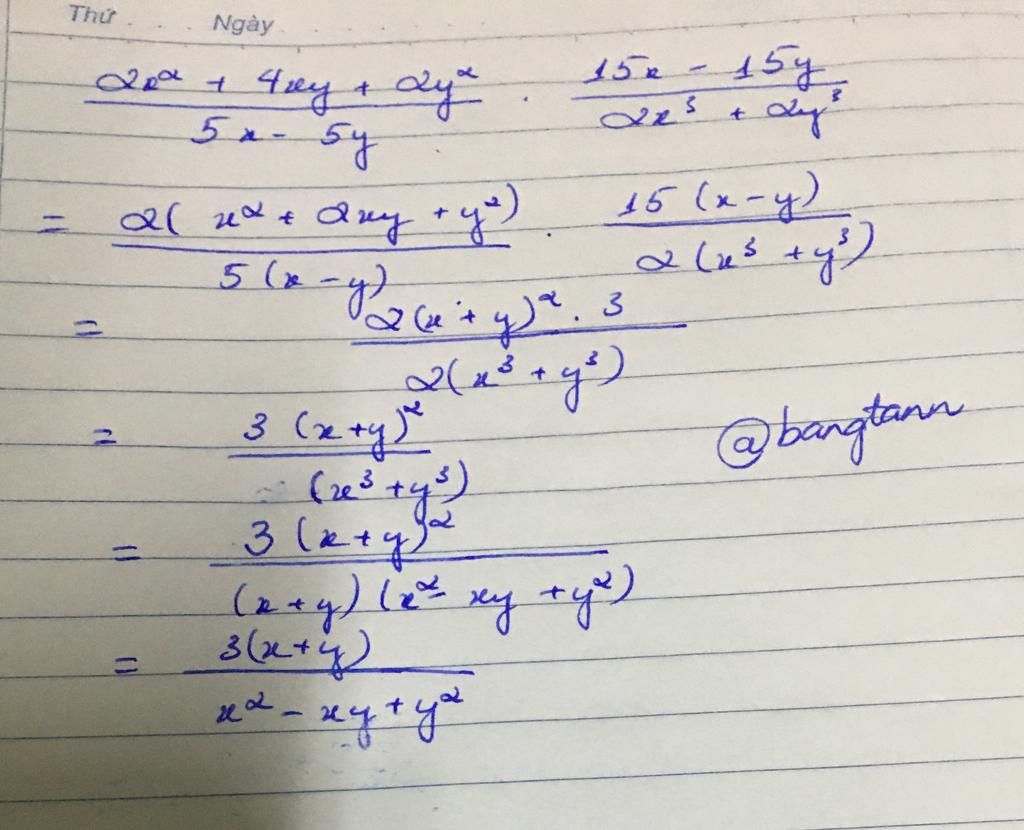 Thứ . . . Ngày . . . .
(2x² + 4xy + 2y²)/(5x - 5y) . (15x - 15y)/(2x³ + 2y³)
= 2(x² + 2xy + y²)/5(x - y) . 15(x - y)/2(x³ + y³)
= 2(x + y)² . 3/2(x³ + y³)
= 3(x+y)²/(x³ + y³)
@bangtann
= 3(x+y)²/(x+y)(x² - xy + y²)
= 3(x+y)/x² - xy + y²